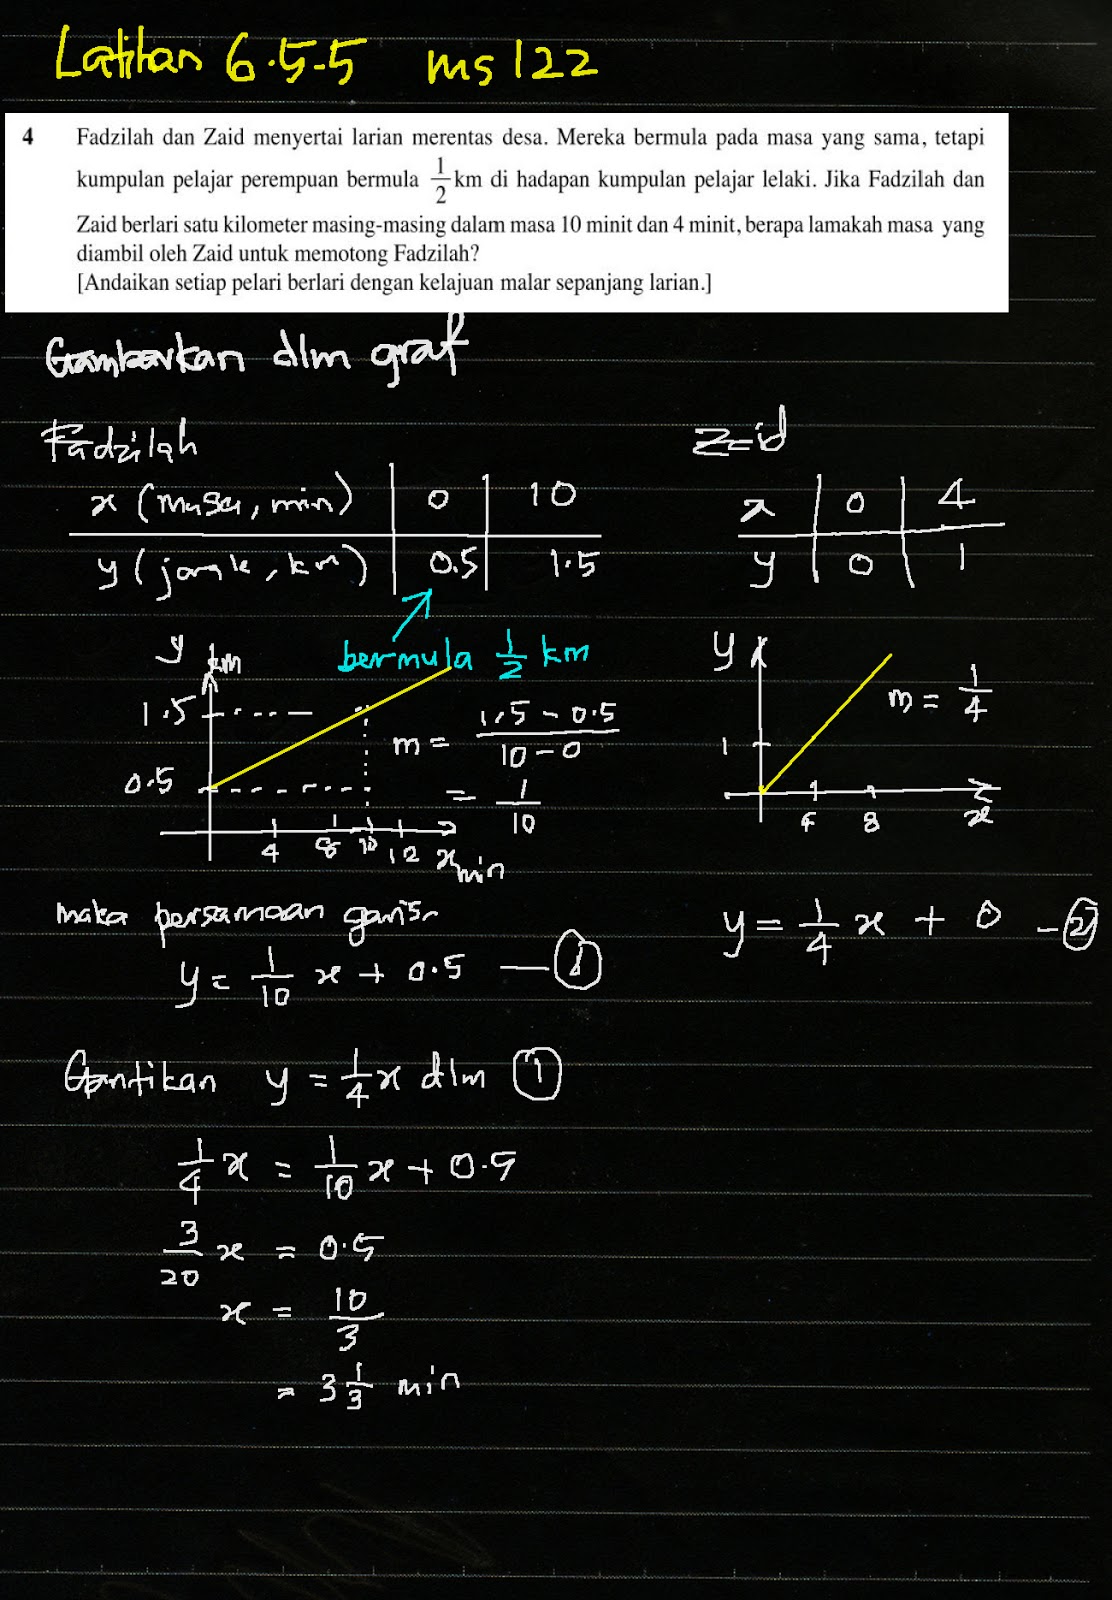 Latihan 6.5.5 ms 122
4 Fadzilah dan Zaid menyertai larian merentas desa. Mereka bermula pada masa yang sama, tetapi
kumpulan pelajar perempuan bermula 1/2 km di hadapan kumpulan pelajar lelaki. Jika Fadzilah dan
Zaid berlari satu kilometer masing-masing dalam masa 10 minit dan 4 minit, berapa lamakah masa yang
diambil oleh Zaid untuk memotong Fadzilah?
[Andaikan setiap pelari berlari dengan kelajuan malar sepanjang larian.]
Gambarkan dlm graf
Fadzilah
x (masa, min) 0 10
y (jarak, km) 0.5 1.5
bermula 1/2 km
y km
1.5
0.5
4 8 10 12 x min
m = (1.5 - 0.5)/(10 - 0)
= 1/10
maka persamaan garis
y = 1/10 x + 0.5 — ①
Zaid
x 0 4
y 0 1
y
1
4 8 x
m = 1/4
y = 1/4 x + 0 - ②
Gantikan y = 1/4 x dlm ①
1/4 x = 1/10 x + 0.5
3/20 x = 0.5
x = 10/3
= 3 1/3 min